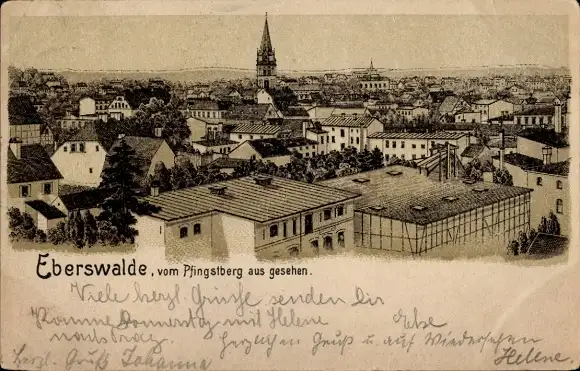 Eberswalde, vom Pfingstberg aus gesehen.
Viele herzl. Grüße senden Dir
Komme Donnerstag mit Helene
Else
herzlichen Gruß u. auf Wiedersehen
Herzl. Gruß Johanna
Helene.